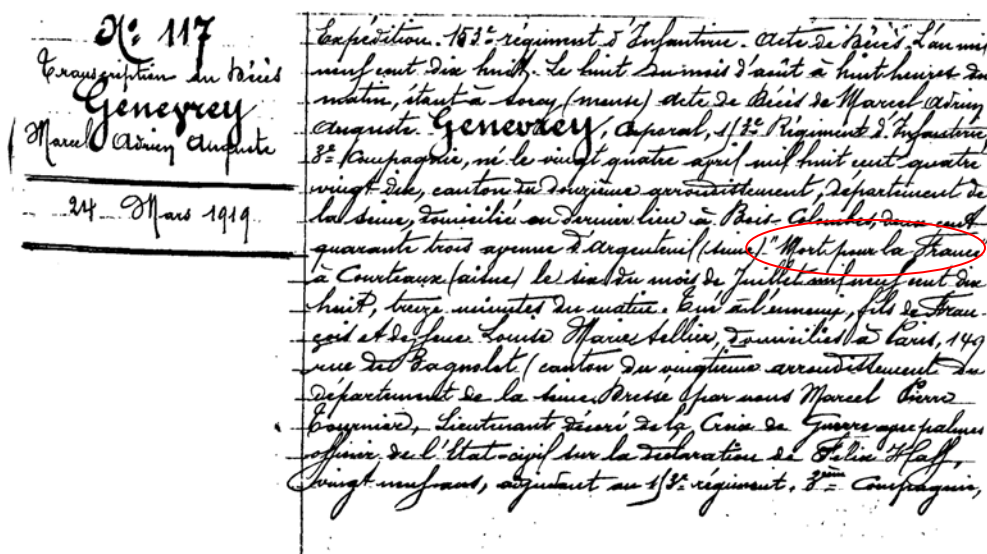 N° 117
Transcription du Décès
Genevrey
Marcel Adrien Auguste
24 Mars 1919
Expédition. 153e régiment d'Infanterie. Acte de Décès. L'an mil
neuf cent dix huit. Le huit du mois d'août à huit heures du
matin, étant à Sorcy (meuse) acte de Décès de Marcel Adrien
Auguste. Genevrey, Caporal, 153e Régiment d'Infanterie,
3e Compagnie, né le vingt quatre avril mil huit cent quatre
vingt dix, canton du douzième arrondissement, département de
la Seine, domicilié en dernier lieu à Bois-Colombes, deux cent
quarante trois avenue d'Argenteuil (seine). "Mort pour la France"
à Courteaux (aisne) le six du mois de Juillet mil neuf cent dix
huit, treize minutes du matin. Tué à l'ennemi, fils de Fran-
çois et de feue Louise Marie Sellier, domiciliés à Paris, 149
rue de Bagnolet (canton du vingtième arrondissement du
département de la Seine. Dressé par nous Marcel Pierre
Tournier, Lieutenant décoré de la Croix de Guerre avec palmes
officier de l'Etat-civil sur la déclaration de Félix
vingt neuf ans, adjudant au 153e régiment. 3ème Compagnie,